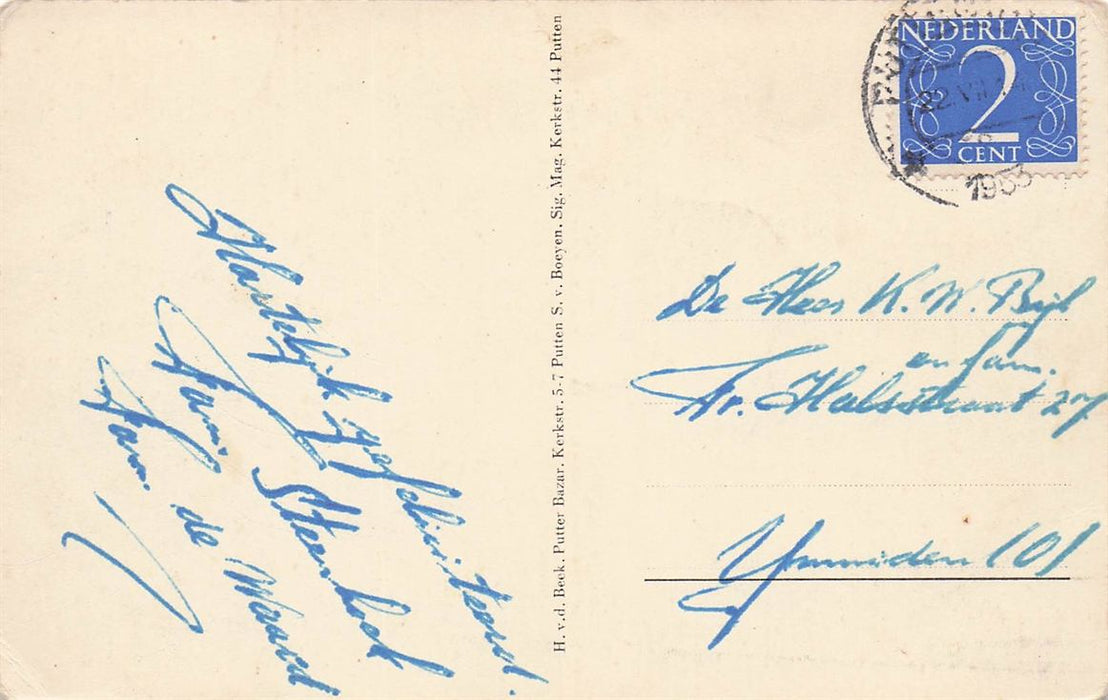 Hartelijk gefeliciteerd.
Fam. Steenbeek
Fam. de Waard
H. v.d. Beek, Putter Bazar, Kerkstr. 5-7 Putten S. v. Boeyen, Sig. Mag. Kerkstr. 44 Putten
NEDERLAND
2
CENT
22.VII
1953
De Heer K. W. Bijl
en fam.
Fr. Halsstraat 27
IJmuiden (O)